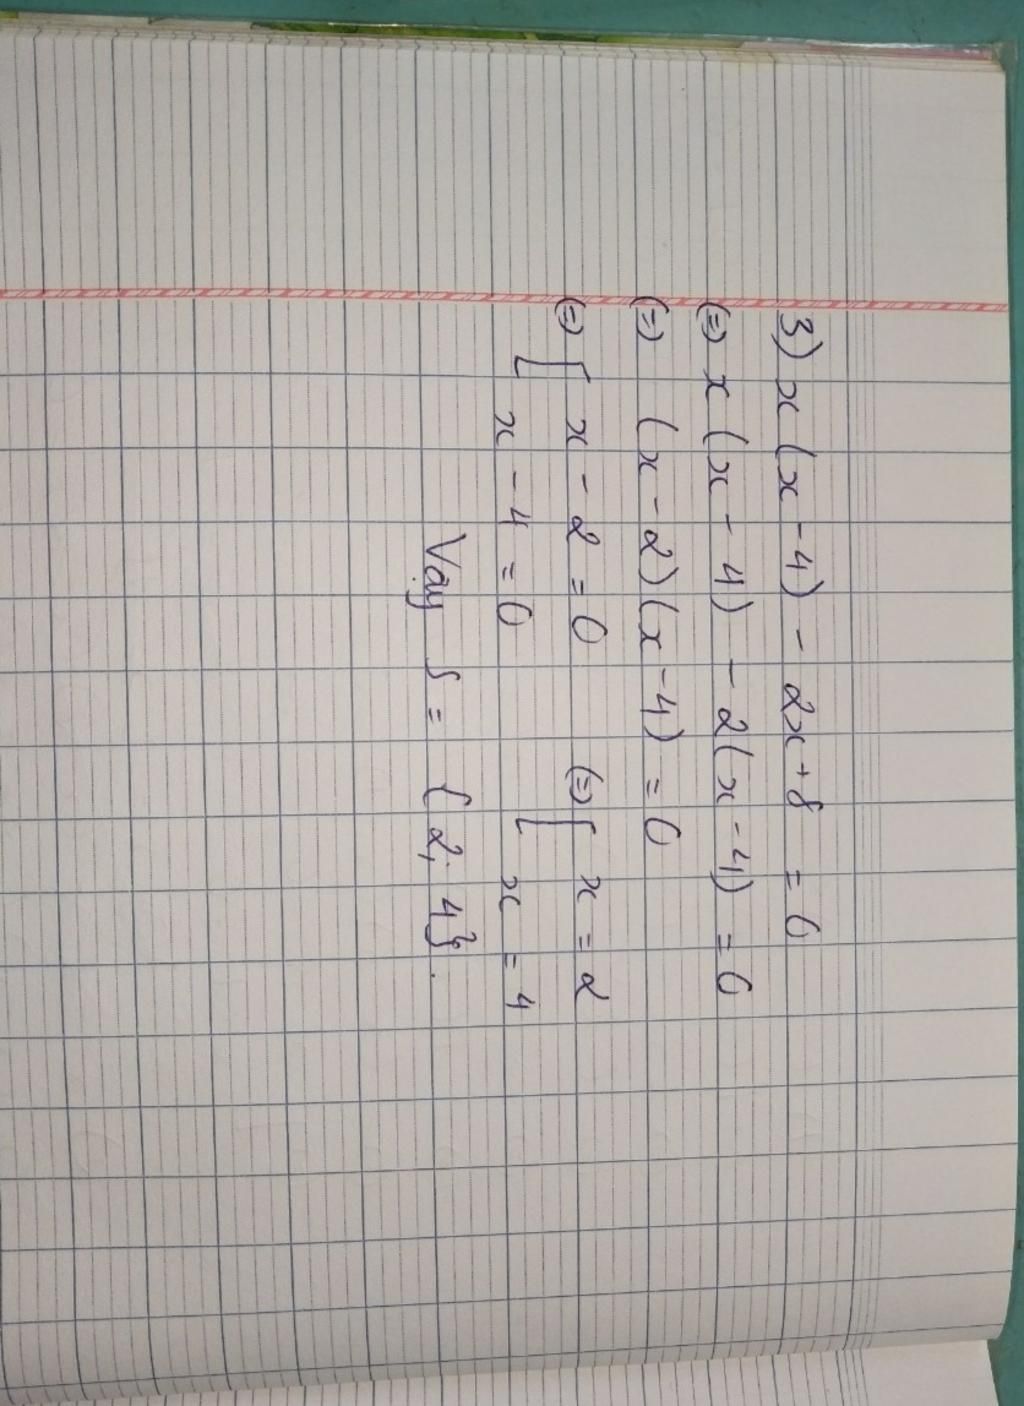 3) x(x-4) - 2x+8 = 0
(=) x(x-4) - 2(x-4) = 0
(=) (x-2)(x-4) = 0
(=) [ x-2=0 (=) [ x=2
x-4=0 x=4
Vậy S = {2; 4}.